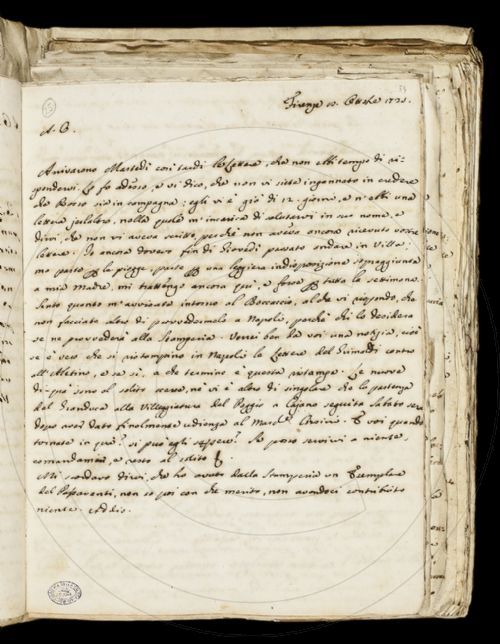 Firenze 10. Ottobre 1731.
A. C.
Arrivarono Martedì così tardi le lettere, che non ebbi tempo di ri-
spondervi. Lo fo adesso, e vi dico, che non vi siete ingannato in credere
che Bosso sia in campagna; egli vi è già di 12. giorni, e n'ebbi una
lettera, nella quale m'incarica di salutarvi in suo nome, e
dirvi, che non vi aveva scritto, perchè non aveva ancora ricevuto vostre
lettere. Io ancora dovevo fin di Giovedì passato andare in Villa;
ma parte per le piogge, parte per una leggiera indisposizione sopraggiunta
a mia Madre, mi trattengo ancora qui, e forse per tutta la settimana.
quanto m'avvisate intorno al Boccaccio, al che vi rispondo, che
non facciate altro di provvedermelo a Napoli, perchè chi lo desidera
se ne provvederà alla Stamperia. Vorrei ben da voi una notizia, cioè
se è vero che si ristampino in Napoli le Lettere del Grimaldi contro
all'Aletino, e se sì, a che termine è questa ristampa. Le nuove
di qui sono al solito scarse, nè vi è altro di singolare che la partenza
del Granduca alla Villeggiatura del Poggio a Cajano seguita Sabato sera
dopo aver dato finalmente udienza al March. E voi quando
tornate in quà? si può egli sapere? Se posso servirvi a niente,
comandatemi, e resto al solito
Mi scordavo dirvi, che ho avuto dalla Stamperia un Esemplare
del Passavanti, non so poi con che merito, non avendoci contribuito
niente. Addio.